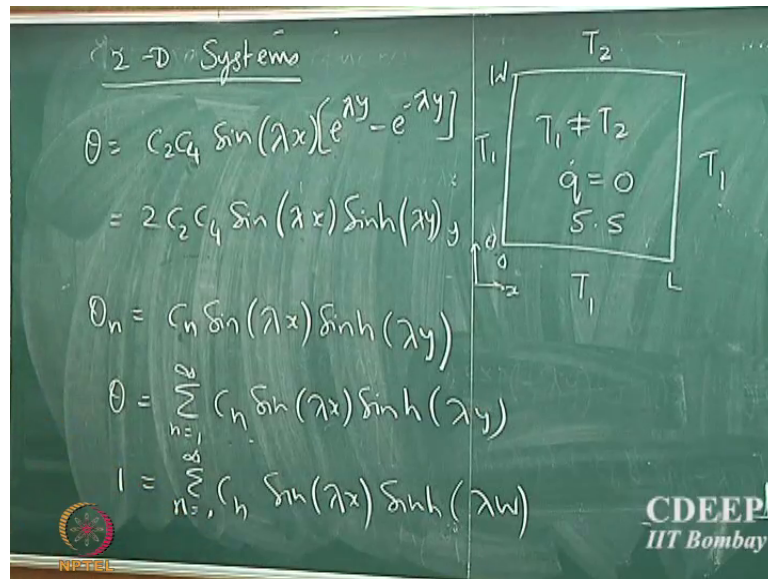 2-D Systems
θ = C₂C₄ Sin(λx)[e^{λy} - e^{-λy}]
= 2 C₂ C₄ Sin(λx) Sinh(λy)
θₙ = Cₙ Sin(λx) Sinh(λy)
θ = ∑_{n=1}^{∞} Cₙ Sin(λx) Sinh(λy)
1 = ∑_{n=1}^{∞} Cₙ Sin(λx) Sinh(λW)
T₂
W
T₁ ≠ T₂
T₁
T₁
q̇ = 0
S.S
y
0
0
x
T₁
L
NPTEL
CDEEP
IIT Bombay